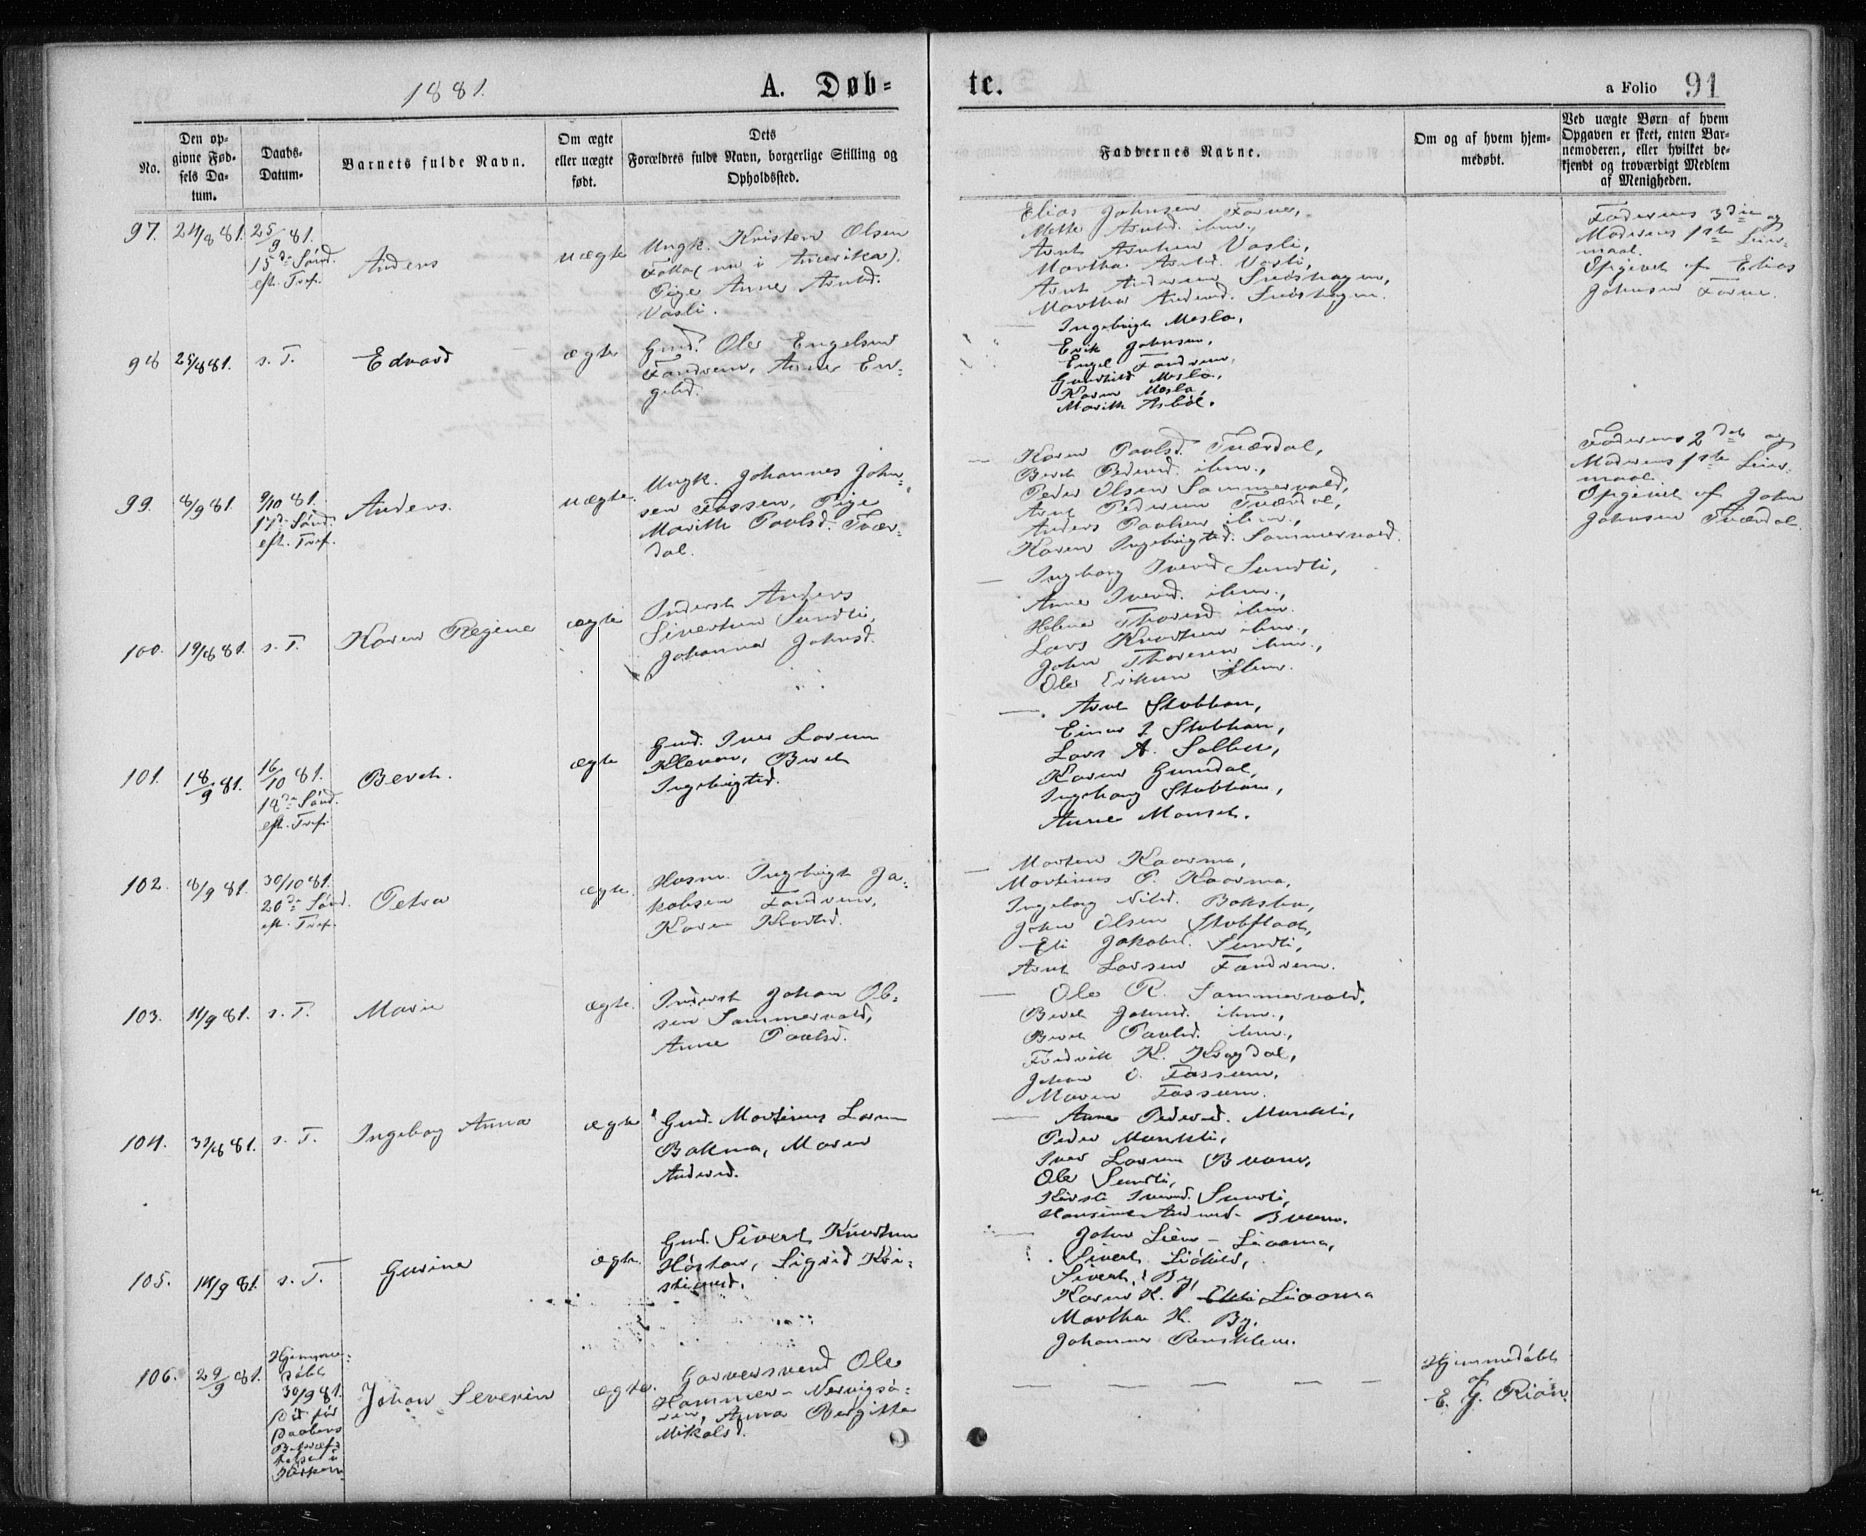 1881.
A. Døb-
te.
a Folio 91
No.
Den op-
givne Fød-
sels Da-
tum.
Daabs-
Datum.
Barnets fulde Navn.
Om ægte
eller uægte
født.
Dets
Forældres fulde Navn, borgerlige Stilling og
Opholdssted.
Faddernes Navne.
Om og af hvem hjem-
medøbt.
Ved uægte Børn af hvem
Opgaven er skeet, enten Bar-
nemoderen, eller hvilket be-
kjendt og troværdigt Medlem
af Menigheden.
97.
25/9 81.
15de Sönd.
eft. Tref.
Anders
uægte
Ungk. Kristen Olsen
(nu i Amerika).
Pige Anne Arntsd.
Vasli.
Elias Johnsen
Mette Arntsd. ibm.,
Arnt Arntsen Vasli,
Martha Arntsd. Vasli,
Arnt Andersen
Martha Andersd.
Faderens 3die og
Moderens 1ste Leier-
maal.
Opgivet af Elias
Johnsen
98
25/8 81.
s. T.
Edvard
ægte
Gmd. Ole Engelsen
Fandrem, Anne En-
gelsd.
Ingebrigt Meslo,
Erik Johnsen,
Engel Fandrem,
Gunhild Meslo,
Karen Meslo,
Marith Asbøl.
99.
8/9 81.
9/10 81.
17de Sönd.
eft. Tref.
Anders.
uægte.
Ungk. Johannes John-
sen Fossen, Pige
Marith Paulsd. Tvær-
dal.
Karen Paulsd. Tværdal,
Beret Pedersd. ibm.,
Peder Olsen Sommervold,
Arne Pedersen Tværdal,
Anders Paulsen ibm.,
Karen Ingebrigtsd. Sommervold.
Faderens 2det og
Moderens 1ste Leier-
maal.
Opgivet af John
Johnsen Tværdal.
100.
19/8 81.
s. T.
Karen Regine
ægte
Inderst Anders
Sivertsen Sundli,
Johanna Johnsd.
Ingeborg Iversd. Sundli,
Anne Iversd. ibm.,
Helene Thoresd. ibm.
Lars Knudsen ibm.,
John Thoresen ibm.,
Ole Eriksen ibm.
101.
18/9 81.
16/10 81.
18de Sönd.
eft. Tref.
Beret.
ægte
Gmd. Iver Larsen
Kleven, Beret
Ingebrigtsd.
Arnt Stubban,
Einar J. Stubban,
Lars A. Solbu,
Karen Gumdal,
Ingeborg Stubban,
Anne Monset.
102.
8/9 81.
30/10 81.
20de Sönd.
eft. Tref.
Petra
ægte.
Husm. Ingebrigt Ja-
kobsen Fandrem,
Karen Knudsd.
Morten Kaarma,
Martinus P. Kaarma,
Ingeborg Nilsd.
John Olsen
Eli Jakobsd. Sundli,
Arnt Larsen Fandrem.
103.
11/9 81.
s. T.
Marie
ægte.
Inderst Johan Ol-
sen Sommervold,
Anne Paulsd.
Ole R. Sommervold,
Beret Johnsd. ibm.,
Beret Paulsd. ibm.,
Fredrik K. Krogdal,
Johan O. Fossum,
Maren Fossum.
104.
31/8 81.
s. T.
Ingeborg Anna
ægte
Gmd. Martinus Larsen
Bakma, Maren
Andersd.
Anne Pedersd. Monkli,
Peder Monkli,
Iver Larsen Buans,
Ole Sundli,
Kirsti Iversd. Sundli,
Hansine Andersd. Buans.
105.
14/9 81.
s. T.
Gurine
ægte
Gmd. Sivert Knudsen
Høston, Sigrid Kri-
stiansd.
John Lien - Liaarma,
Sivert
Sivert By,
Karen H. Liaarma
Martha H. By.
Johanna
106.
29/9 81.
Hjemme-
döbt
30/9 81.
Död før
Daabens
Bekræf-
telse i
Kirken.
Johan Severin
ægte.
Garversvend Ole
Hammer - Nervigsø-
ren, Anna Bergitte
Mikalsd.
Hjemmedöbt
af
E. G. Rian.